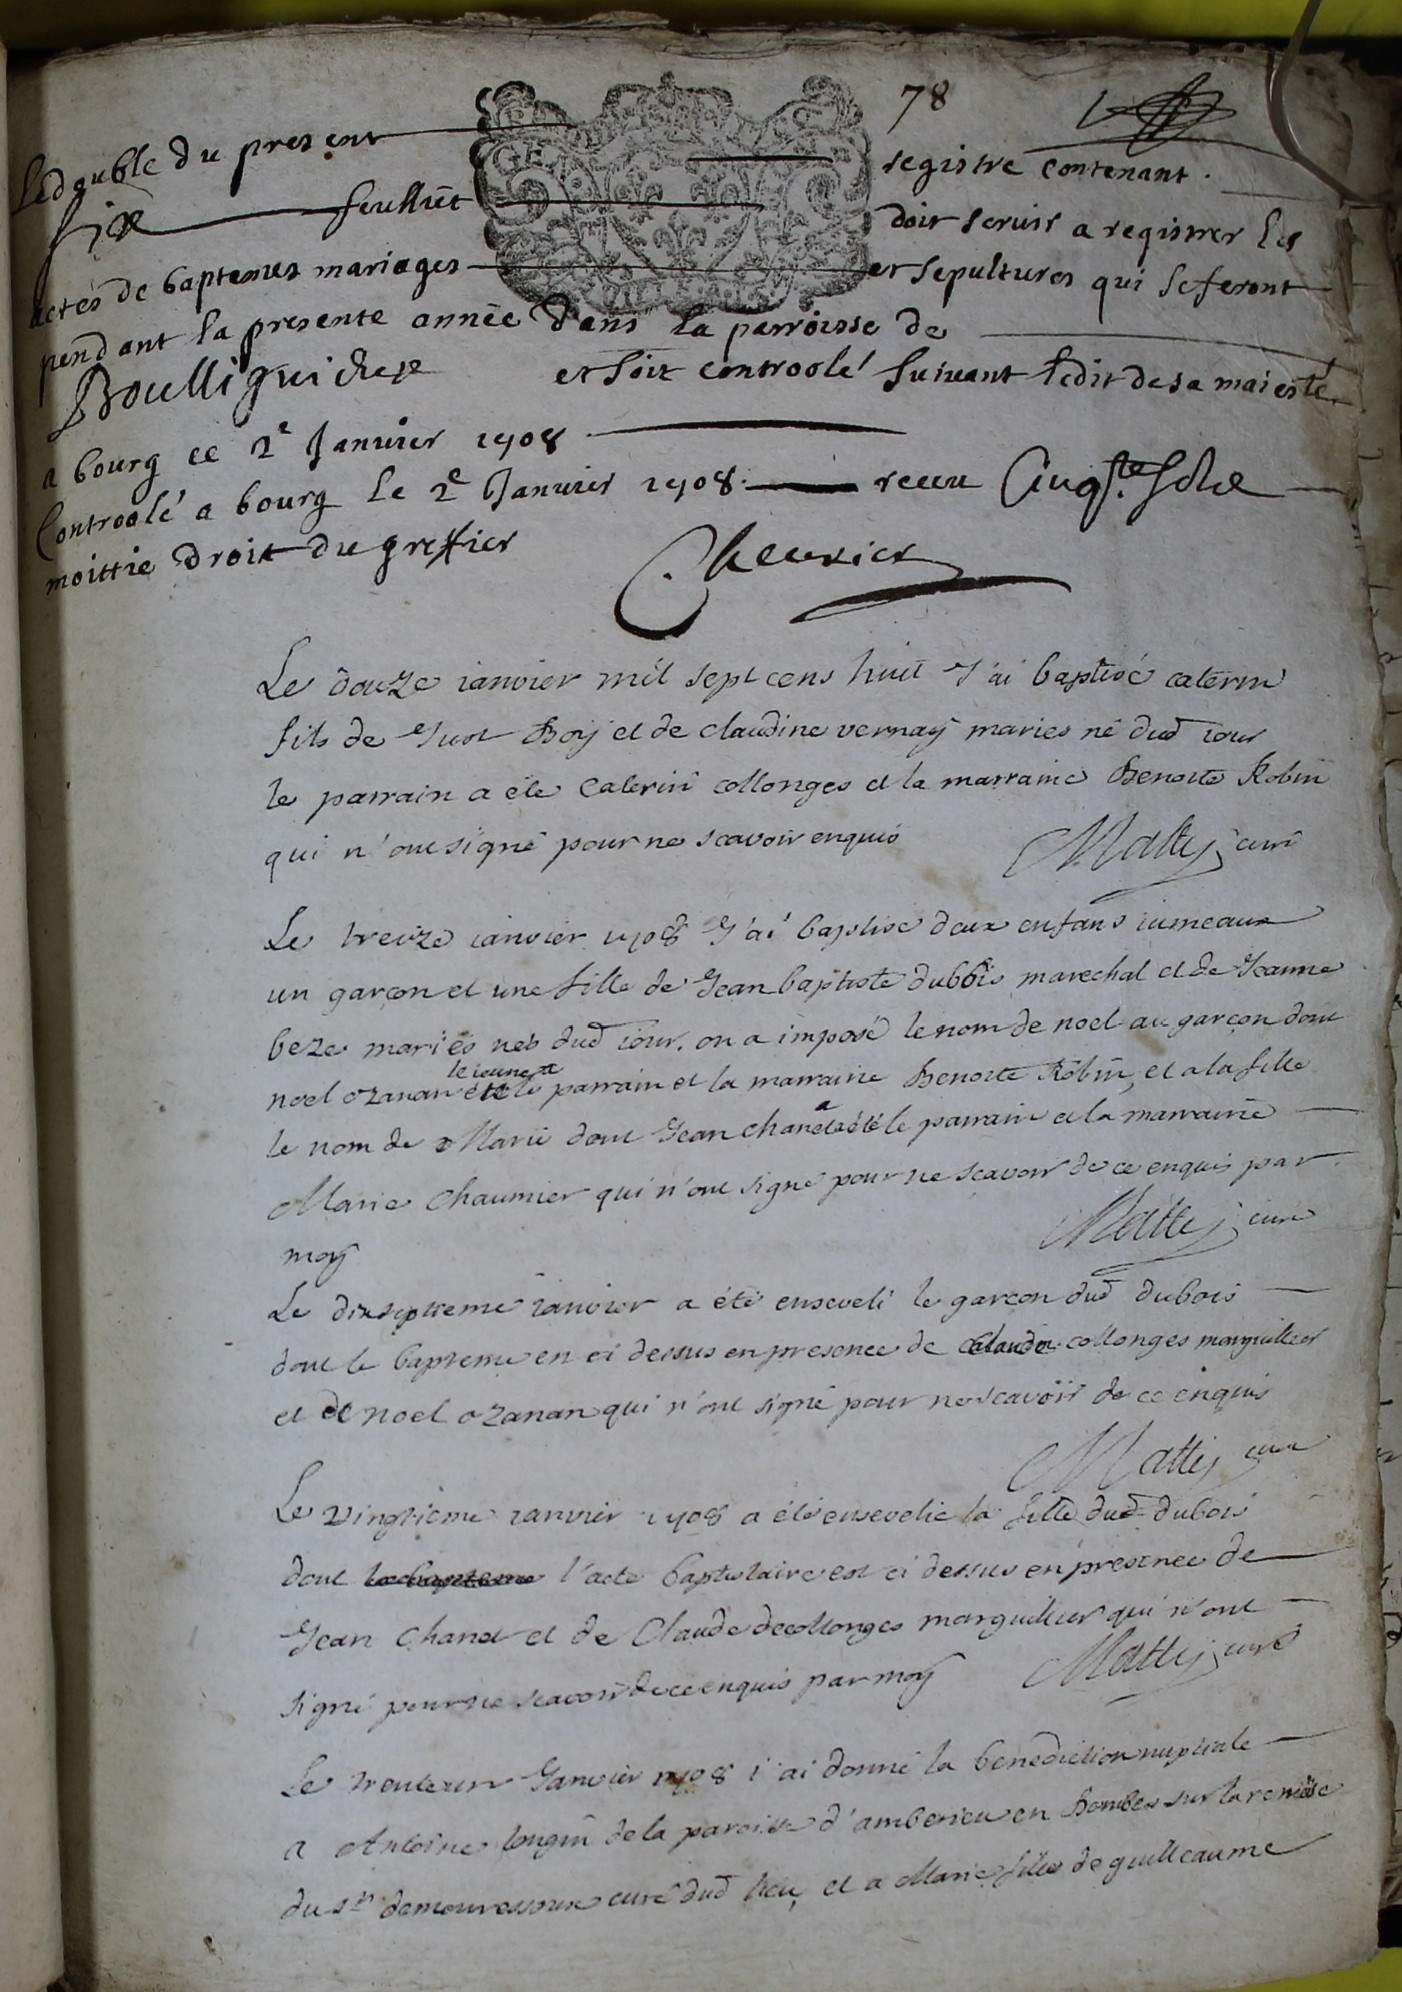 78
Le double du present registre contenant
six feulliet doit servir a registrer les
actes de baptemes mariages et sepultures qui se feront
pendant la presente année dans la parroisse de
Boullignieux et soit controolé suivant ledit de sa maiesté
a bourg ce 2e Janvier 1708
Controolé a bourg le 2e Janvier 1708 receu cinq s.
moittie droit du greffier
Chevrier
Le douze ianvier mil sept cens huit J'ai baptisé caterin
fils de Just Boy et de claudine vernay maries né dud iour
le parrain a été Caterin collonges et la marraine Benoite Robin
qui n'ont signé pour ne scavoir enquis
Matty curé
Le treize ianvier 1708 J'ai baptisé deux enfans iumeaux
un garçon et une fille de Jean baptiste dubois marechal et de Jeanne
beze mariés nés dud iour. on a imposé le nom de noel au garçon dont
le ieune a
noel ozanan été le parrain et la marraine Benoite Robin, et a la fille
le nom de Marie dont Jean chanel a été le parrain et la marraine
Marie Chaumier qui n'ont signé pour ne scavoir de ce enquis par
moy
Matty curé
Le dixseptieme ianvier a été enseveli le garçon dud dubois
dont le bapteme en ci dessus en presence de Claude collonges marguillier
et de noel ozanan qui n'ont signé pour ne scavoir de ce enquis
Matty curé
Le vingtieme ianvier 1708 a été ensevelie la fille dud dubois
dont l'acte baptistaire est ci dessus en presence de
Jean Chanel et de Claude decollonges marguillier qui n'ont
signé pour ne scavoir de ce enquis par moy
Matty curé
Le trente un Janvier 1708 i'ai donné la benediction nuptiale
a Antoine longin de la paroisse d'amberieu en Dombes sur la remise
du sr demouressoux curé dud lieu, et a Marie fille de guilleaume